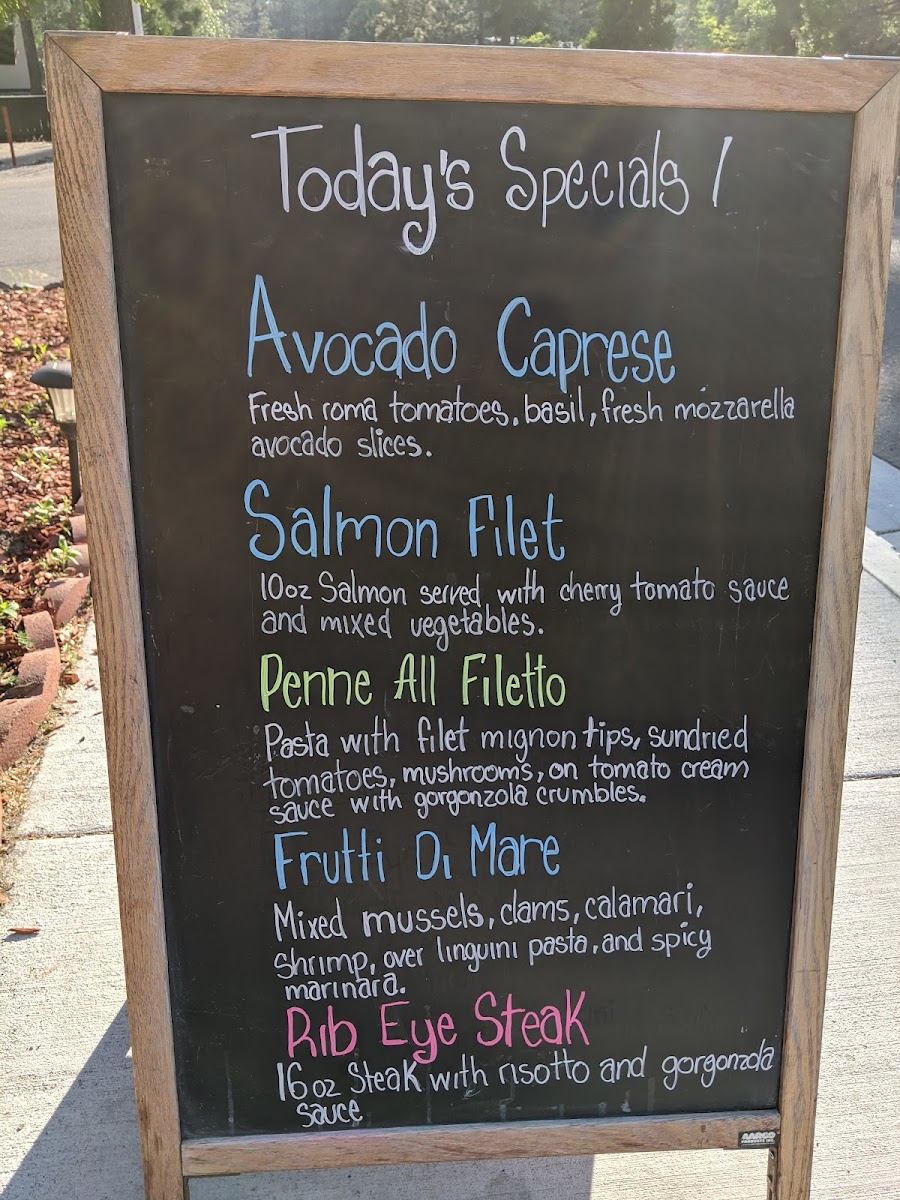 Today's Specials !
Avocado Caprese
Fresh roma tomatoes, basil, fresh mozzarella
avocado slices.
Salmon Filet
10oz Salmon served with cherry tomato sauce
and mixed vegetables.
Penne All Filetto
Pasta with filet mignon tips, sundried
tomatoes, mushrooms, on tomato cream
sauce with gorgonzola crumbles.
Frutti Di Mare
Mixed mussels, clams, calamari,
Shrimp, over linguini pasta, and spicy
marinara.
Rib Eye Steak
16oz Steak with risotto and gorgonzola
sauce
AARCO
PRODUCTS INC.